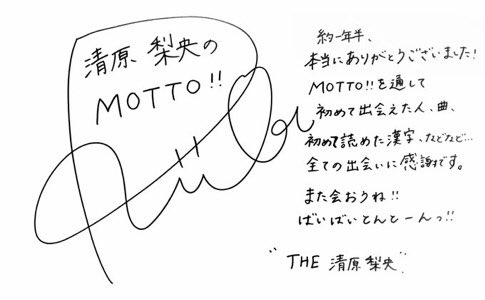 清原 梨央の
MOTTO!!
約一年半、
本当にありがとうございました!
MOTTO!!を通して
初めて出会えた人、曲、
初めて読めた漢字、などなど…
全ての出会いに感謝です。
また会おうね!!
ばいばいとんとーんっ!!
"THE 清原梨央"